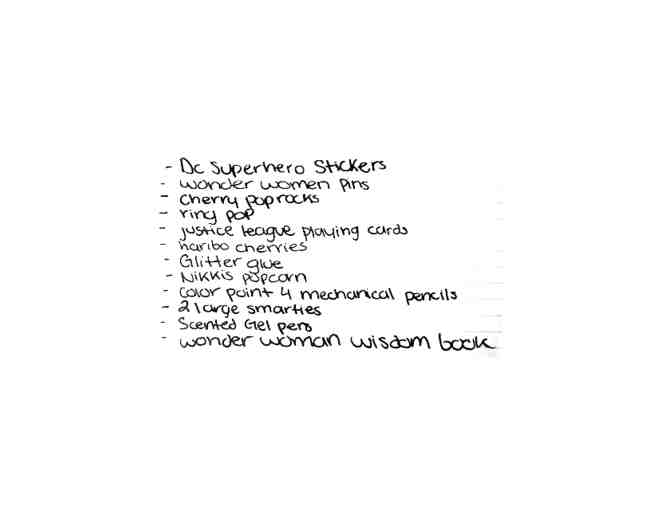 - DC Superhero Stickers
- wonder women pins
- cherry poprocks
- ring pop
- justice league playing cards
- haribo cherries
- Glitter glue
- Nikkis popcorn
- Color point 4 mechanical pencils
- 2 large smarties
- Scented Gel pens
- wonder woman wisdom book